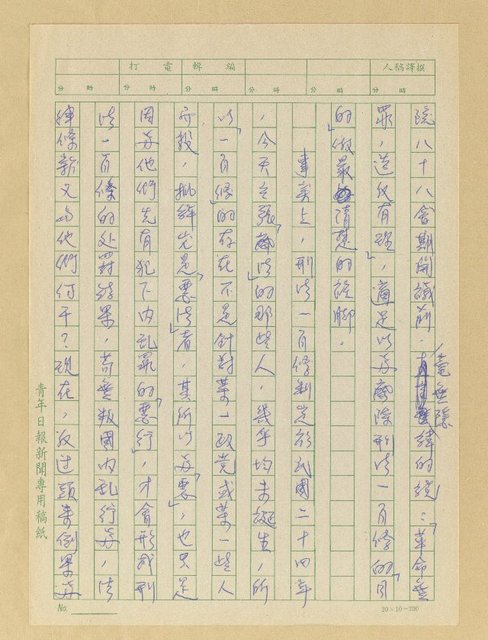 撰譯稿人
編輯
電打
時 分
時 分
時 分
時 分
時 分
院八十八會期開議前，毫無隱諱的說：「革命無
罪，造反有理」，適足以為廢除刑法一百條的
的做最清楚的註腳。
事實上，刑法一百條制定於民國二十四年
，今天主張「廢法」的那些人，幾乎均未誕生，所
以「一百條」的存在不是針對某一政黨或某一些人
而設，批評它是「惡法」者，其所以為「惡」，也只是
因為他們先有犯下內亂罪的「惡行」，才會形成刑
法一百條的處罰結果，苟無叛國內亂行為，法
律條款又與他們何干？現在，反過頭來倒果為
青年日報新聞專用稿紙
No.
20×10=200